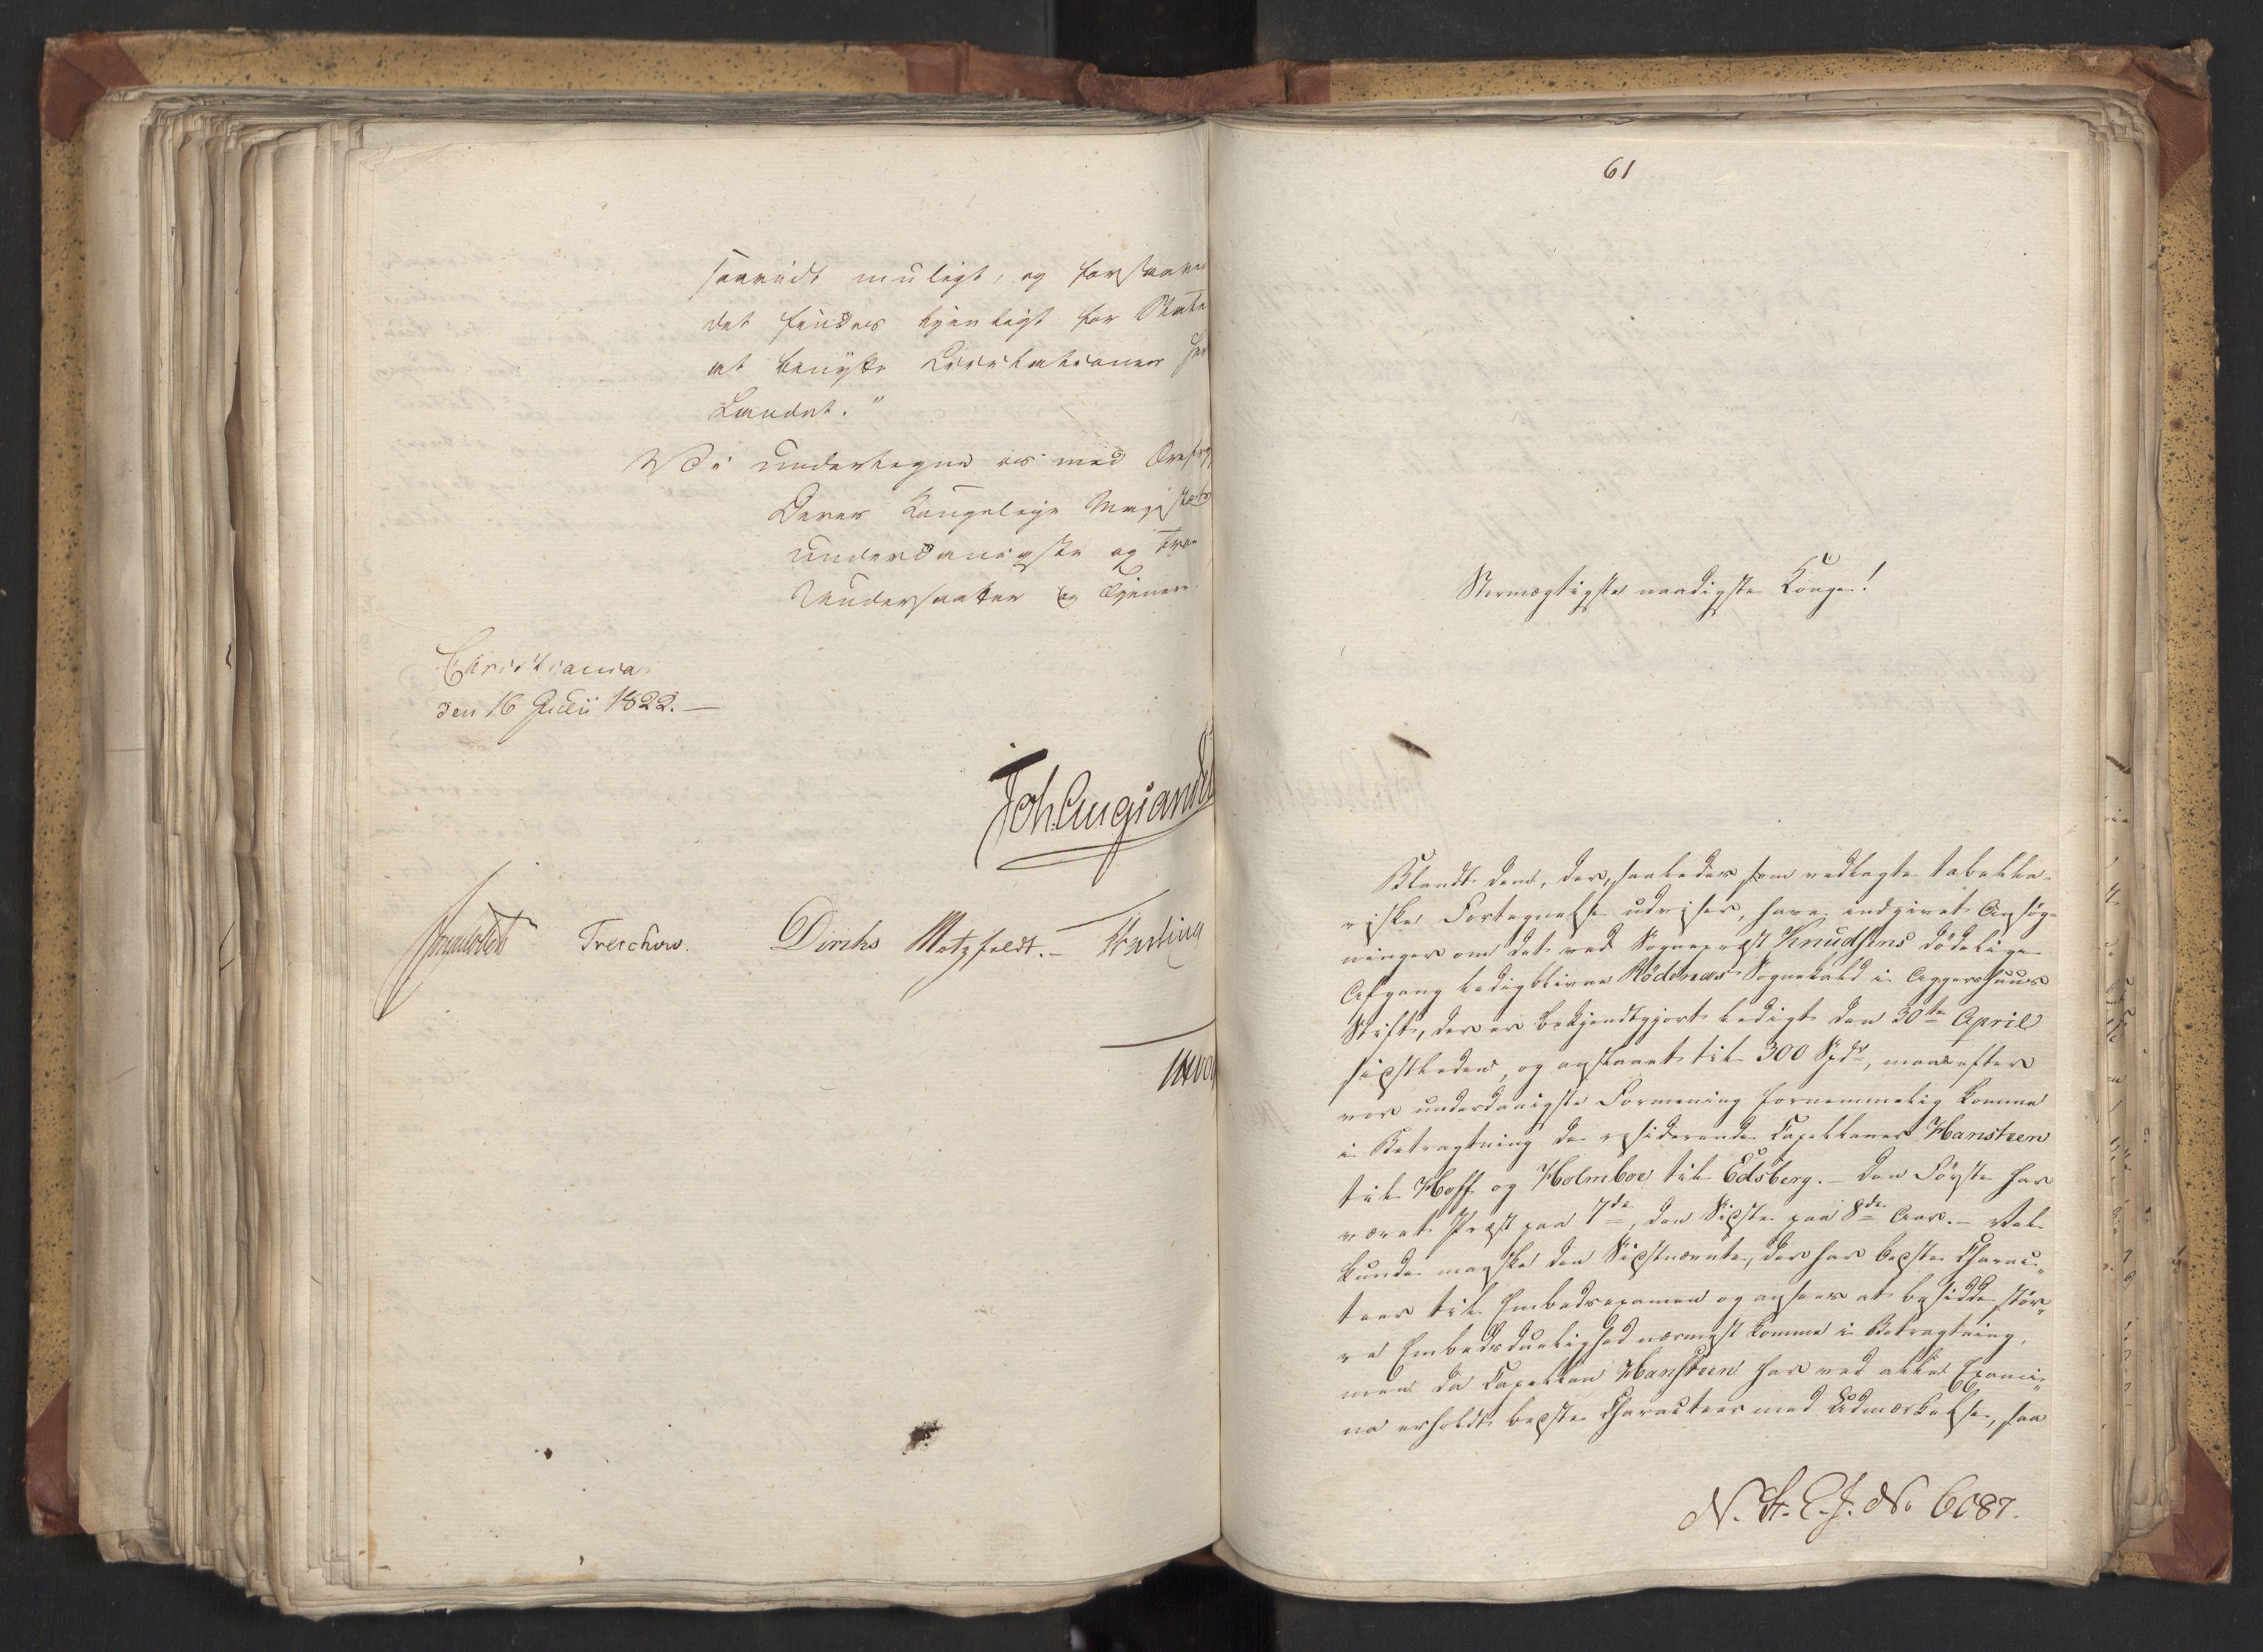 saavidt muligt, og forsaavidt
det findes tjenligt for Staten
at benytte Licitationer her
Landet."
Vi undertegne os med Ærefrygt
Deres Kongelige Majestæts
underdanigste og troe
Undersaatter og Tjenere
Christiania,
den 16 Julii 1822. —
Joh. Aug. Sandels
Treschow. Diriks Motzfeldt. — Hesting
61
Stormægtigste naadigste Konge!
Blandt dem, der, saaledes som vedlagte tabella-
riske Fortegnelse udviser, have indgivet Ansøg-
ninger om det ved Sognepræst Knudsens dødelige
Afgang ledigblivne Rödenæs Sognekald i Aggershuus
Stift, der er bekjendtgjort ledigt den 30te April
sidstleden, og anslaaet til 300 Spd, maae efter
vor underdanigste Formening fornemmelig komme
i Betragtning de residerende Capellaner Hansteen
til Hoff og Holmboe til Edsberg. — Den Første har
været Præst paa 7de, den Sidste paa 8de Aar. — Vel
kunde maaskee den Sidstnævnte, der har bedste Charac-
teer til Embedsexamen og ansees at besidde stør-
re Embedsduelighed nærmest komme i Betragtning,
men da Capellan Hansteen har ved alle Exami-
na erholdt bedste Characteer med Udmærkelse, saa
N. St. E. J. No 6087.